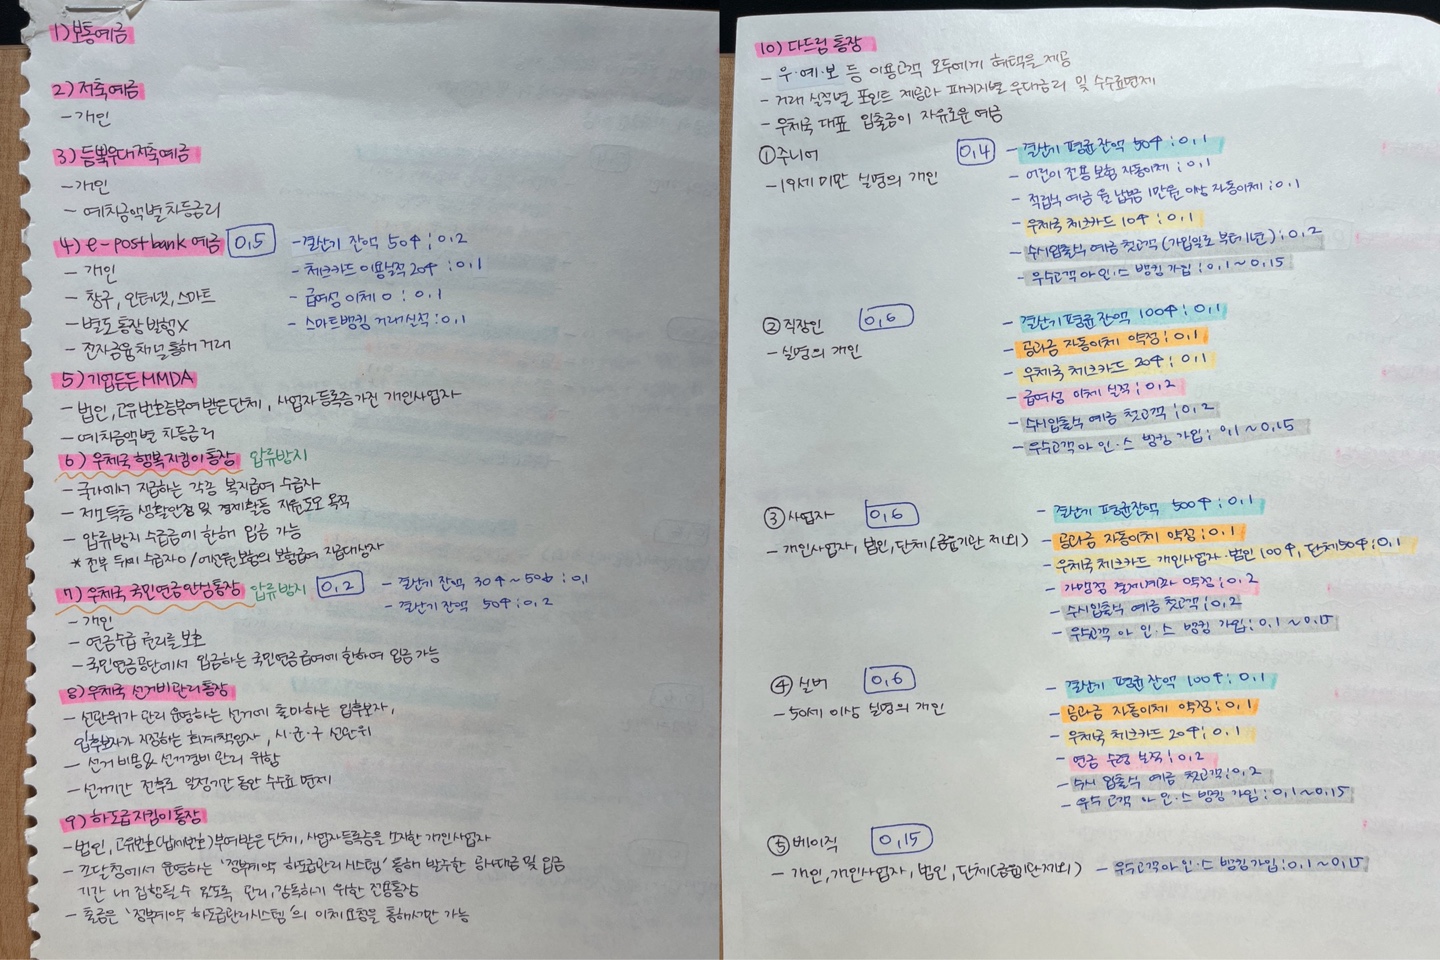 1) 보통예금
2) 저축예금
- 개인
3) 듬뿍우대저축예금
- 개인
- 예치금액별 차등금리
4) e-postbank 예금 0,5
- 결산기 잔액 50↑ : 0,2
- 개인
- 체크카드 이용실적 20↑ : 0,1
- 창구, 인터넷, 스마트
- 급여성 이체 0 : 0,1
- 별도 통장 발행X
- 스마트뱅킹 거래실적 : 0,1
- 전자금융채널 통해 거래
5) 기업든든 MMDA
- 법인, 고유번호증부여받은단체, 사업자등록증가진 개인사업자
- 예치금액별 차등금리
6) 우체국 행복지킴이통장 압류방지
- 국가에서 지급하는 각종 복지급여 수급자
- 저소득층 생활안정 및 경제활동 지원도모 목적
- 압류방지 수급금에 한해 입금 가능
* 전부 뒤찌 수급자 0 / 보험의 보험급여 지급대상자
7) 우체국 국민연금안심통장 압류방지 0,2
- 결산기 잔액 30↑~50↓ : 0,1
- 결산기 잔액 50↑ : 0,2
- 개인
- 연금수급 권리를 보호
- 국민연금공단에서 입금하는 국민연금급여에 한하여 입금 가능
8) 우체국 선거비관리통장
- 선관위가 관리 운영하는 선거에 출마하는 입후보자,
입후보자가 지정하는 회계책임자, 시·군·구 선관위
- 선거 비용 & 선거경비 관리 위함
- 선거기간 전후로 일정기간 동안 수수료 면제
9) 하도급지킴이통장
- 법인, 고유번호(납세번호)부여받은 단체, 사업자등록증을 소지한 개인사업자
- 조달청에서 운영하는 '정부계약 하도급관리시스템' 통해 발주한 공사대금 및 입금
기간 내 집행될 수 있도록 관리, 감독하기 위한 전용통장
- 출금은 '정부계약 하도급관리시스템'의 이체요청을 통해서만 가능
10) 다드림 통장
- 우·예·보 등 이용고객 모두에게 혜택을 제공
- 거래 실적별 포인트 제공과 패키지별 우대금리 및 수수료면제
- 우체국 대표 입출금이 자유로운 예금
① 주니어 0,4
- 19세 미만 실명의 개인
- 결산기 평균 잔액 50↑ : 0,1
- 어린이 전용 보험 자동이체 : 0,1
- 적립식 예금 월 납부금 1만원 이상 자동이체 : 0,1
- 우체국 체크카드 10↑ : 0,1
- 수시입출식 예금 첫고객 (가입일로 부터 1년) : 0,2
- 우수고객 아 인·스 뱅킹 가입 : 0,1~0,15
② 직장인 0,6
- 실명의 개인
- 결산기평균 잔액 100↑ : 0,1
- 공과금 자동이체 약정 : 0,1
- 우체국 체크카드 20↑ : 0,1
- 급여성 이체 실적 : 0,2
- 수시입출식 예금 첫고객 : 0,2
- 우수고객 아 인·스 뱅킹 가입 : 0,1~0,15
③ 사업자 0,6
- 개인사업자, 법인, 단체(금융기관 제외)
- 결산기 평균잔액 500↑ : 0,1
- 공과금 자동이체 약정 : 0,1
- 우체국 체크카드 개인사업자·법인 100↑, 단체50↑ : 0,1
- 가맹점 결제계좌 약정 : 0,2
- 수시입출식 예금 첫고객 : 0,2
- 우수고객 아 인·스 뱅킹 가입 : 0,1~0,15
④ 실버 0,6
- 50세 이상 실명의 개인
- 결산기 평균 잔액 100↑ : 0,1
- 공과금 자동이체 약정 : 0,1
- 우체국 체크카드 20↑ : 0,1
- 연금 수령 실적 : 0,2
- 수시 입출식 예금 첫고객 : 0,2
- 우수 고객 아 인·스 뱅킹 가입 : 0,1~0,15
⑤ 베이직 0,15
- 개인, 개인사업자, 법인, 단체(금융기관제외)
- 우수고객 아 인·스 뱅킹 가입 : 0,1~0,15